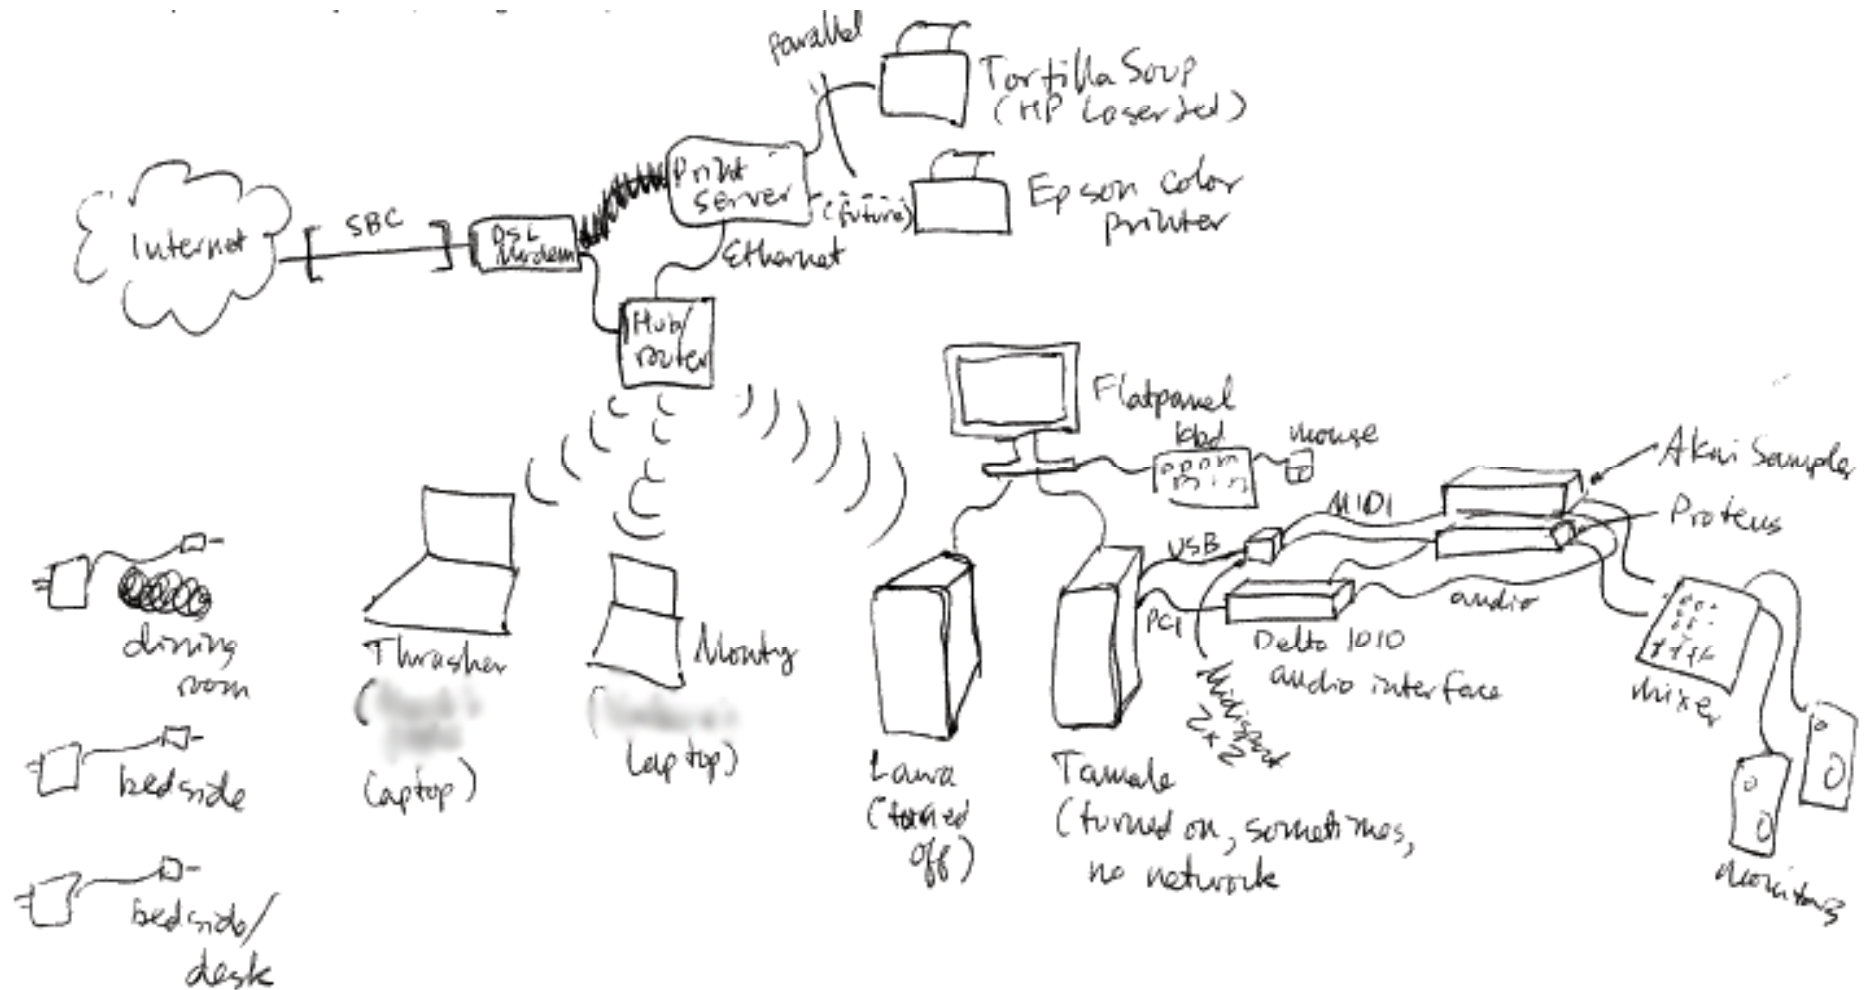 parallel
Tortilla Soup
(HP LaserJet)
Print
server
(future)
Epson color
printer
Internet
SBC
DSL
Modem
Ethernet
Hub/
router
Flatpanel
kbd
mouse
Akai Sampler
Proteus
MIDI
USB
PCI
audio
Delta 1010
audio interface
Midisport
2x2
mixer
monitors
dining
room
bedside
bedside/
desk
Thrasher
(
laptop)
Monty
(
laptop)
Lava
(turned
off)
Tamale
(turned on, sometimes,
no network